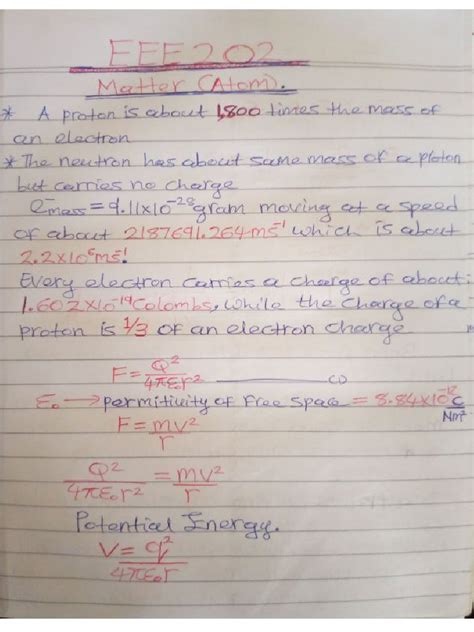 EEE202
Matter (Atom).
* A proton is about 1,800 times the mass of
an electron
* The neutron has about same mass of a ploton
but carries no charge
e⁻mass = 9.11x10⁻²⁸ gram moving at a speed
of about 2187691.264 ms⁻¹ which is about
2.2x10⁶ms⁻¹.
Every electron carries a charge of about
1.602x10⁻¹⁹ Colombs, while the charge of a
proton is 1/3 of an electron charge
F = Q²/4πε₀r² ______ (1)
ε₀ → permitivity of free space = 8.84x10⁻¹² C/Nm²
F = mv²/r
Q²/4πε₀r² = mv²/r
Potential Energy.
V = q²/4πε₀r